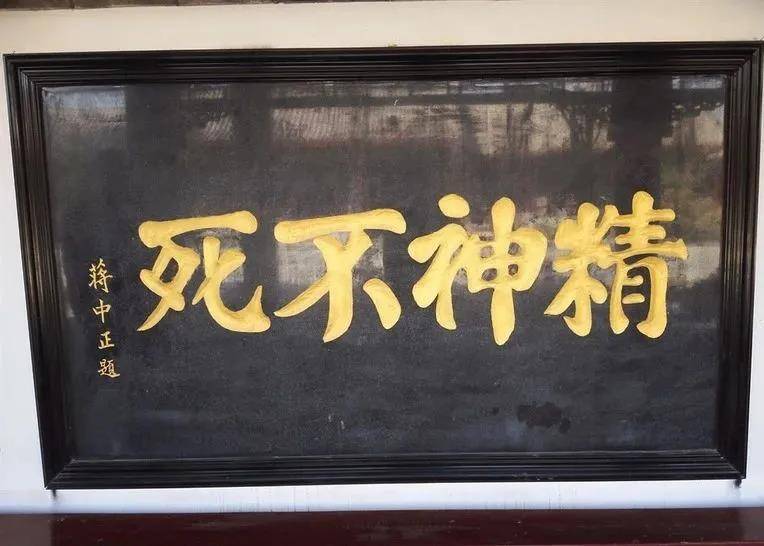 精神不死
蒋中正題